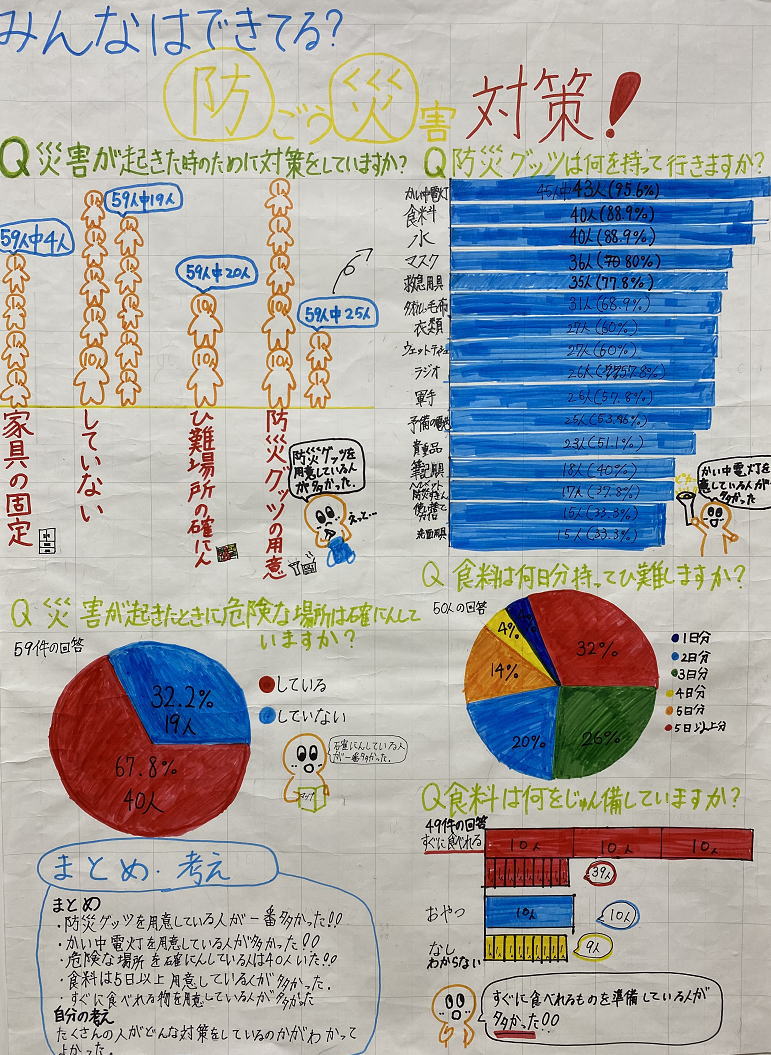 みんなはできてる?
防ごう災害対策!
Q災害が起きた時のために対策をしていますか?
59人中4人
59人中19人
59人中20人
59人中25人
家具の固定
していない
ひ難場所の確にん
防災グッツの用意
防災グッツを
用意している人
が多かった.
えっと…
Q防災グッツは何を持って行きますか?
かい中電灯 45人中43人(95.6%)
食料 40人(88.9%)
水 40人(88.9%)
マスク 36人(80%)
救急用具 35人(77.8%)
31人(68.9%)
衣類 27人(60%)
ウェットティシュ 27人(60%)
ラジオ 26人(57.8%)
軍手 26人(57.8%)
予備の電池
貴重品 23人(51.1%)
筆記用具 18人(40%)
ヘルメット
防災ずきん 17人(37.8%)
15人(33.3%)
洗面用具 15人(33.3%)
かい中電灯を
意している人が
多かった
Q災害が起きたときに危険な場所は確にんして
いますか?
59件の回答
32.2%
19人
67.8%
40人
している
していない
確にんしている人
が一番多かった.
マップ
Q食料は何日分持ってひ難しますか?
50人の回答
4%
4%
32%
14%
20%
26%
1日分
2日分
3日分
4日分
5日分
5日以上分
Q食料は何をじゅん備していますか?
49件の回答
すぐに食べれる 10人 10人 10人
39人
おやつ 10人 10人
なし
わからない 9人
すぐに食べれるものを準備している人が
多かった!!
まとめ・考え
まとめ
・防災グッツを用意している人が一番多かった!!
・かい中電灯を用意している人が多かった!!
・危険な場所を確にんしている人は40人いた!!
・食料は5日以上用意している人が多かった.
・すぐに食べれる物を用意している人が多かった
自分の考え
たくさんの人がどんな対策をしているのかがわかって
よかった.